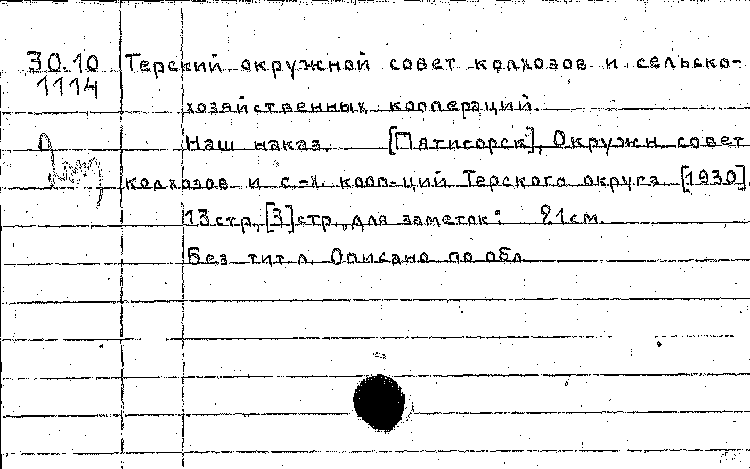 30.10
1114
Терский окружной совет колхозов и сельско-
хозяйственных коопераций.
Наш наказ. [Пятигорск], Окружн. совет
колхозов и с.-х. кооп-ций Терского округа [1930].
13 стр., [3] стр. для заметок; 21 см.
Без тит. л. Описано по обл.